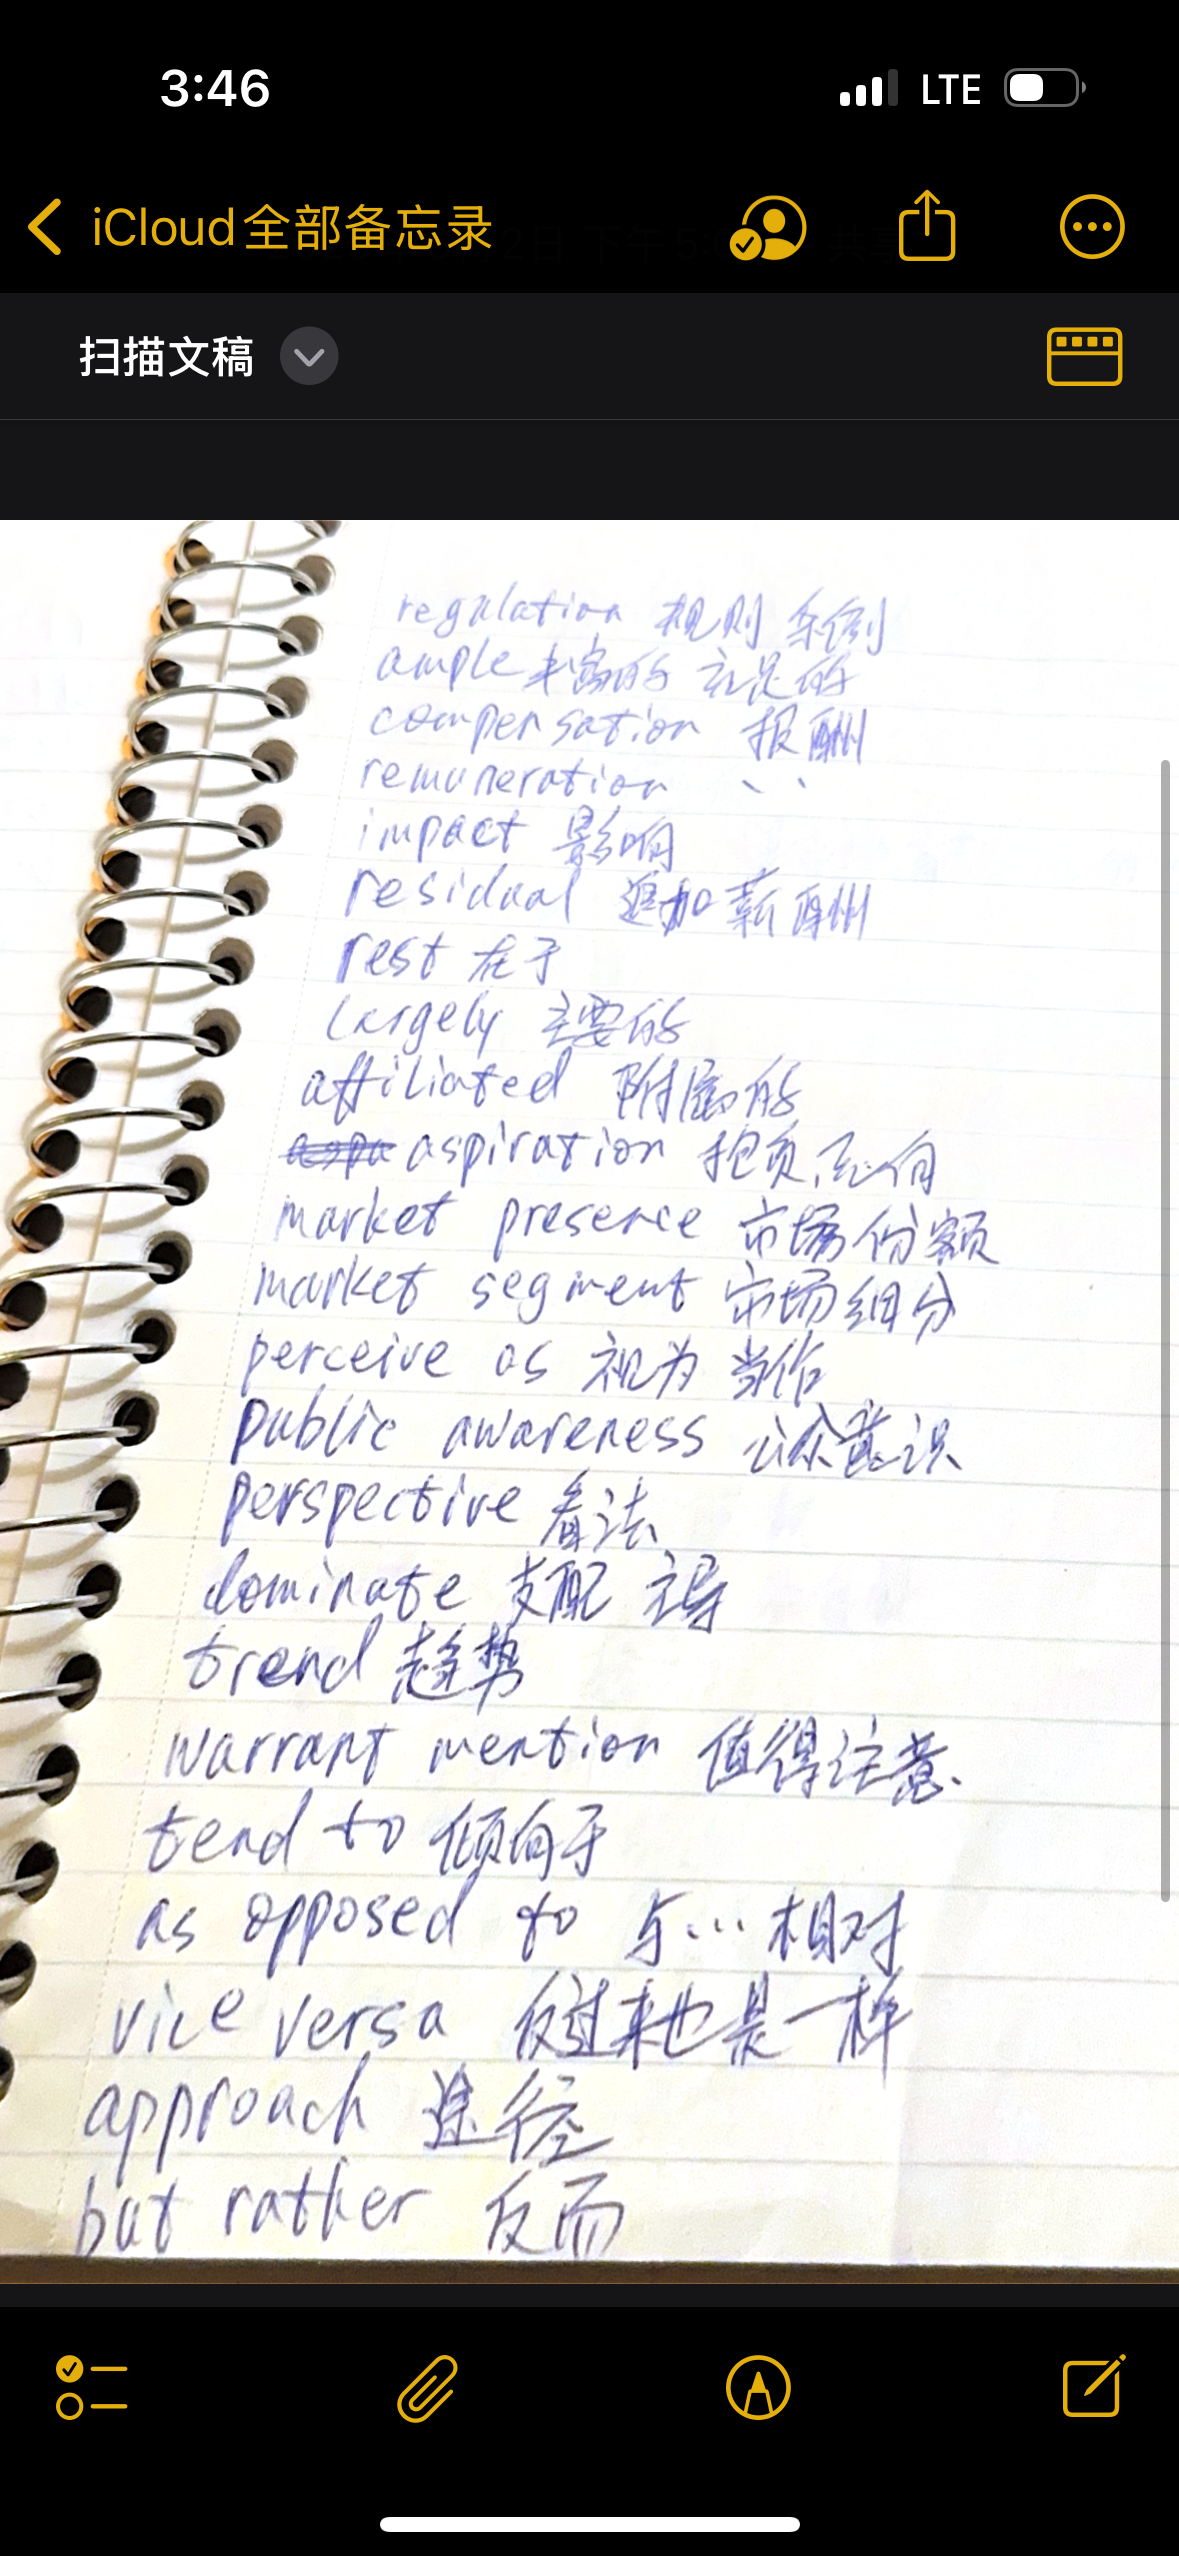 3:46 LTE
iCloud全部备忘录
扫描文稿
regulation 规则 条例
ample 丰富的 充足的
compensation 报酬
remuneration 、、
impact 影响
residual 追加薪酬
rest 在于
largely 主要的
affiliated 附属的
aspiration 抱负,志向
market presence 市场份额
market segment 市场细分
perceive as 视为 当作
public awareness 公众意识
perspective 看法
dominate 支配 主导
trend 趋势
warrant mention 值得注意.
tend to 倾向于
as opposed to 与...相对
vice versa 反过来也是一样
approach 途径
but rather 反而